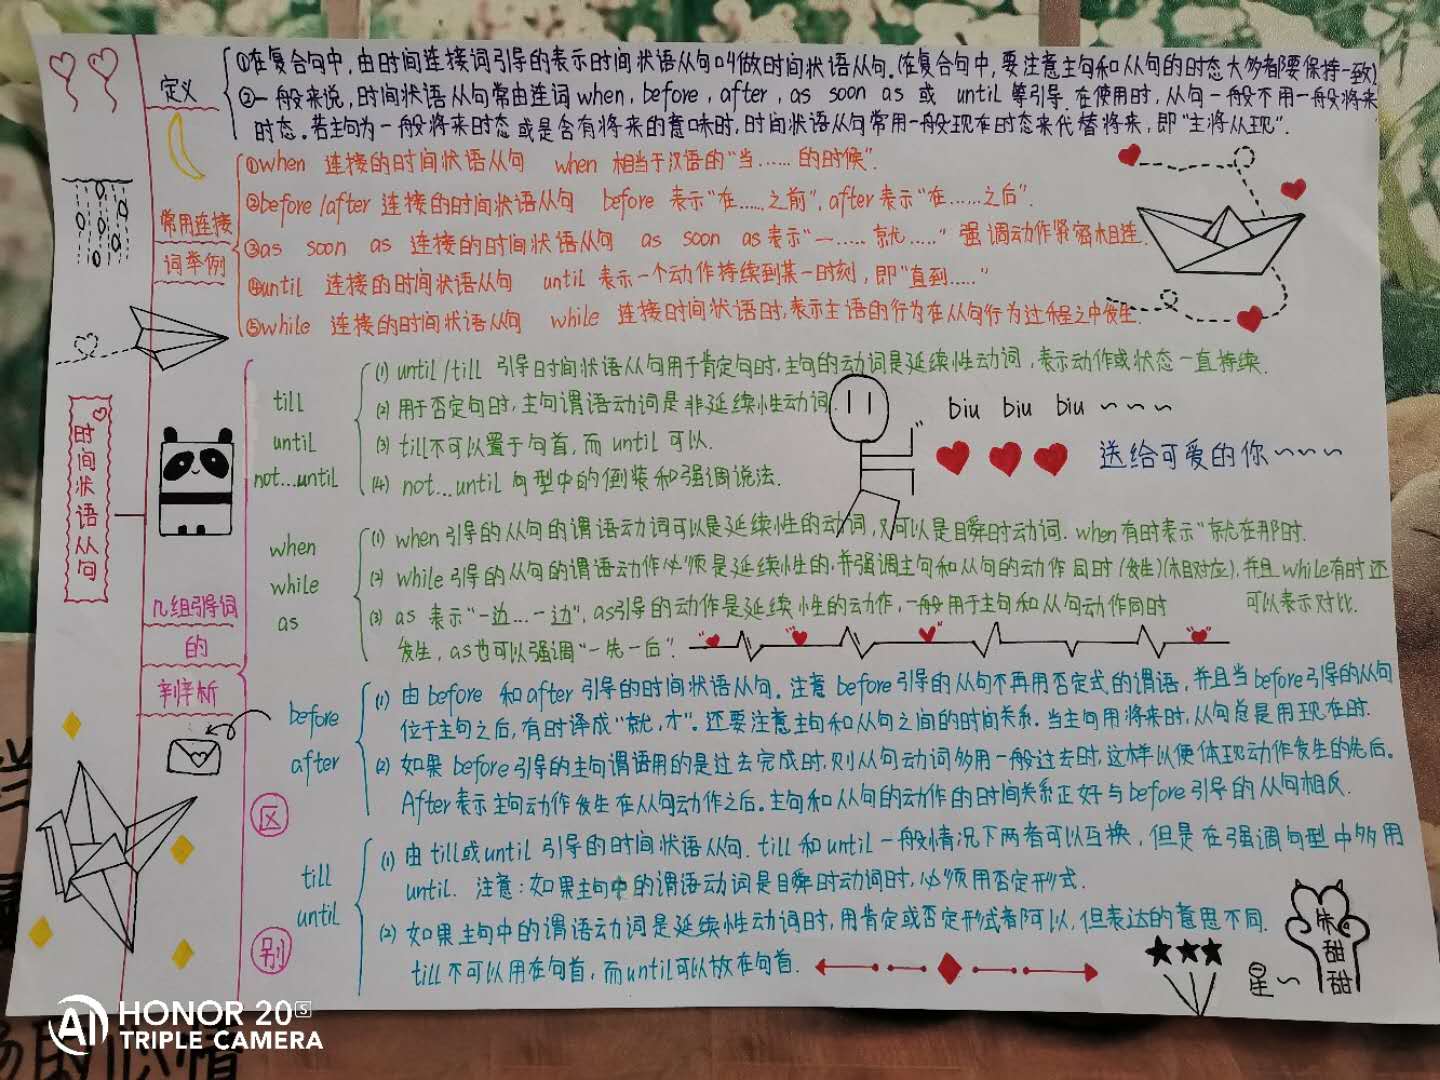 定义
①在复合句中,由时间连接词引导的表示时间状语从句叫做时间状语从句.(在复合句中,要注意主句和从句的时态大多都要保持一致)
②一般来说,时间状语从句常由连词when, before, after, as soon as 或 until 等引导.在使用时,从句一般不用一般将来
时态.若主句为一般将来时态或是含有将来的意味时,时间状语从句常用一般现在时态来代替将来,即“主将从现”.
常用连接
词举例
①when 连接的时间状语从句 when 相当于汉语的“当……的时候”.
②before/after 连接的时间状语从句 before 表示“在……之前”,after表示“在……之后”.
③as soon as 连接的时间状语从句 as soon as表示“一……就……” 强调动作紧密相连.
④until 连接的时间状语从句 until 表示一个动作持续到某一时刻,即“直到……”
⑤while 连接的时间状语从句 while 连接时间状语时,表示主语的行为在从句行为过程之中发生.
时间状语从句
几组引导词
的
辛辛析
till
until
not...until
(1) until/till 引导时间状语从句用于肯定句时,主句的动词是延续性动词,表示动作或状态一直持续.
(2) 用于否定句时,主句谓语动词是非延续性动词.
(3) till不可以置于句首,而until可以.
(4) not...until句型中的倒装和强调说法.
biu biu biu ~~~
送给可爱的你~~~
when
while
as
(1) when引导的从句的谓语动词可以是延续性的动词,又可以是瞬时动词.when有时表示“就在那时.
(2) while引导的从句的谓语动作必须是延续性的,并强调主句和从句的动作同时(发生)(相对应),并且while有时还
可以表示对比.
(3) as 表示“一边...一边”,as引导的动作是延续性的动作,一般用于主句和从句动作同时
发生,as也可以强调“一先一后”.
区
别
before
after
(1) 由before 和after引导的时间状语从句.注意before引导的从句不再用否定式的谓语,并且当before引导的从句
位于主句之后,有时译成“就,才”.还要注意主句和从句之间的时间关系.当主句用将来时,从句总是用现在时.
(2) 如果before引导的主句谓语用的是过去完成时,则从句动词多用一般过去时,这样以便体现动作发生的先后.
After表示主句动作发生在从句动作之后.主句和从句的动作的时间关系正好与before引导的从句相反.
till
until
(1) 由till或until引导的时间状语从句.till和until一般情况下两者可以互换,但是在强调句型中多用
until. 注意:如果主句中的谓语动词是瞬时动词时,必须用否定形式.
(2) 如果主句中的谓语动词是延续性动词时,用肯定或否定形式都可以,但表达的意思不同.
till不可以用在句首,而until可以放在句首.
星~
朱甜甜
HONOR 20S
TRIPLE CAMERA